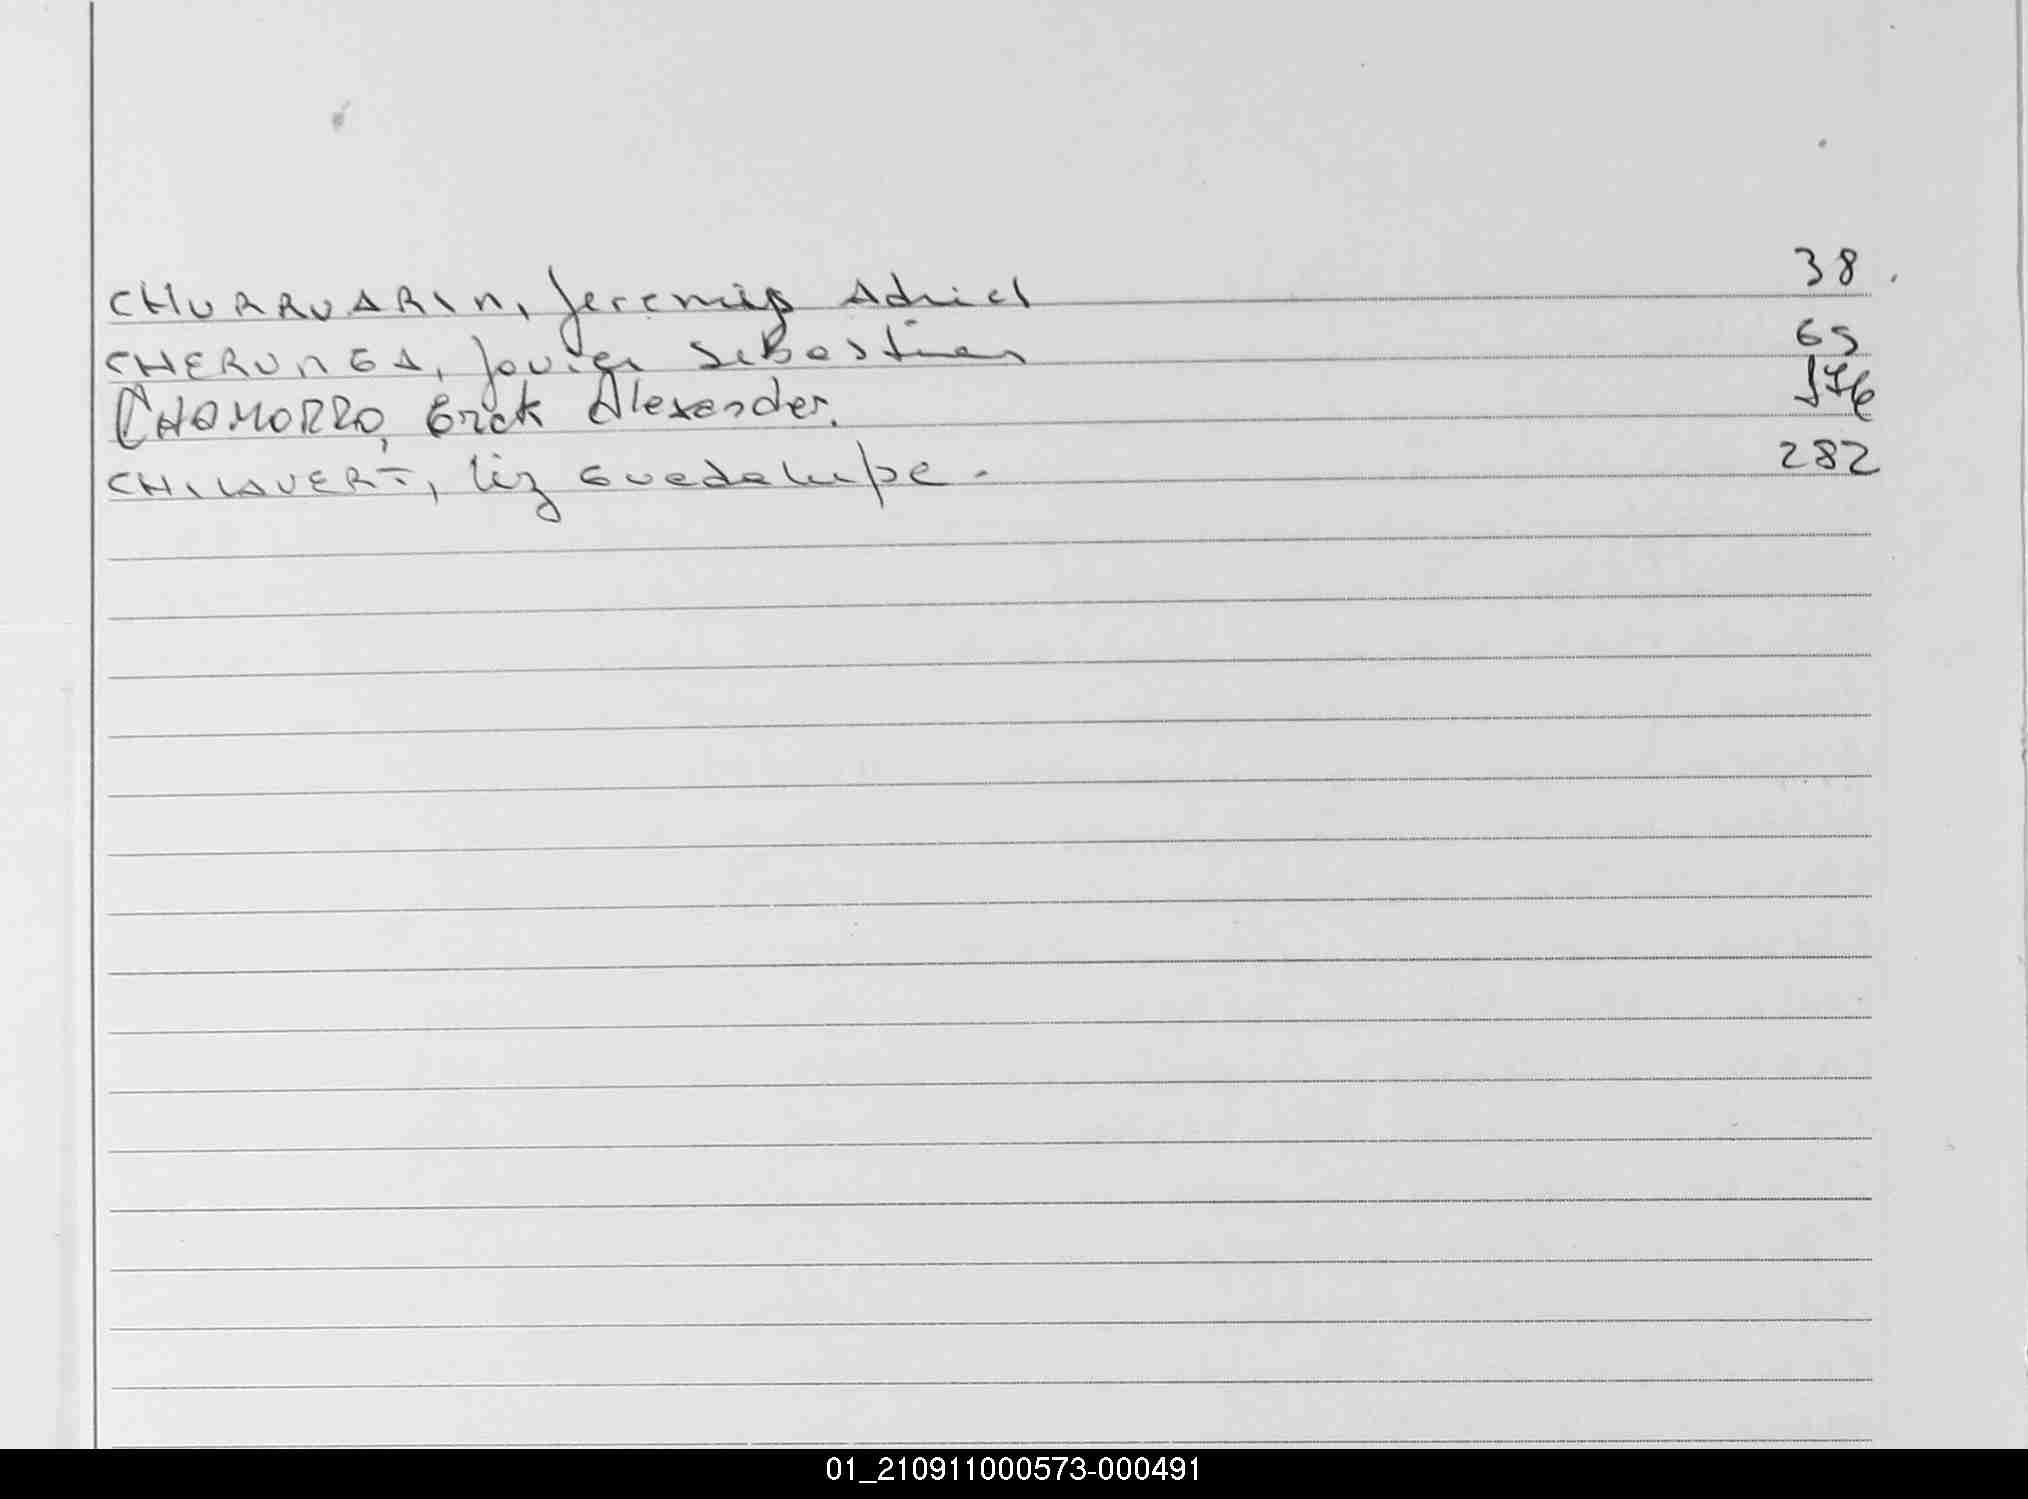 CHURRUARIN, Jeremias Adriel 38
CHERUNGA, Javier Sebastian 65
CHAMORRO, Erick Alexander. 176
CHILAVERT, Liz Guadalupe - 282
01_210911000573-000491